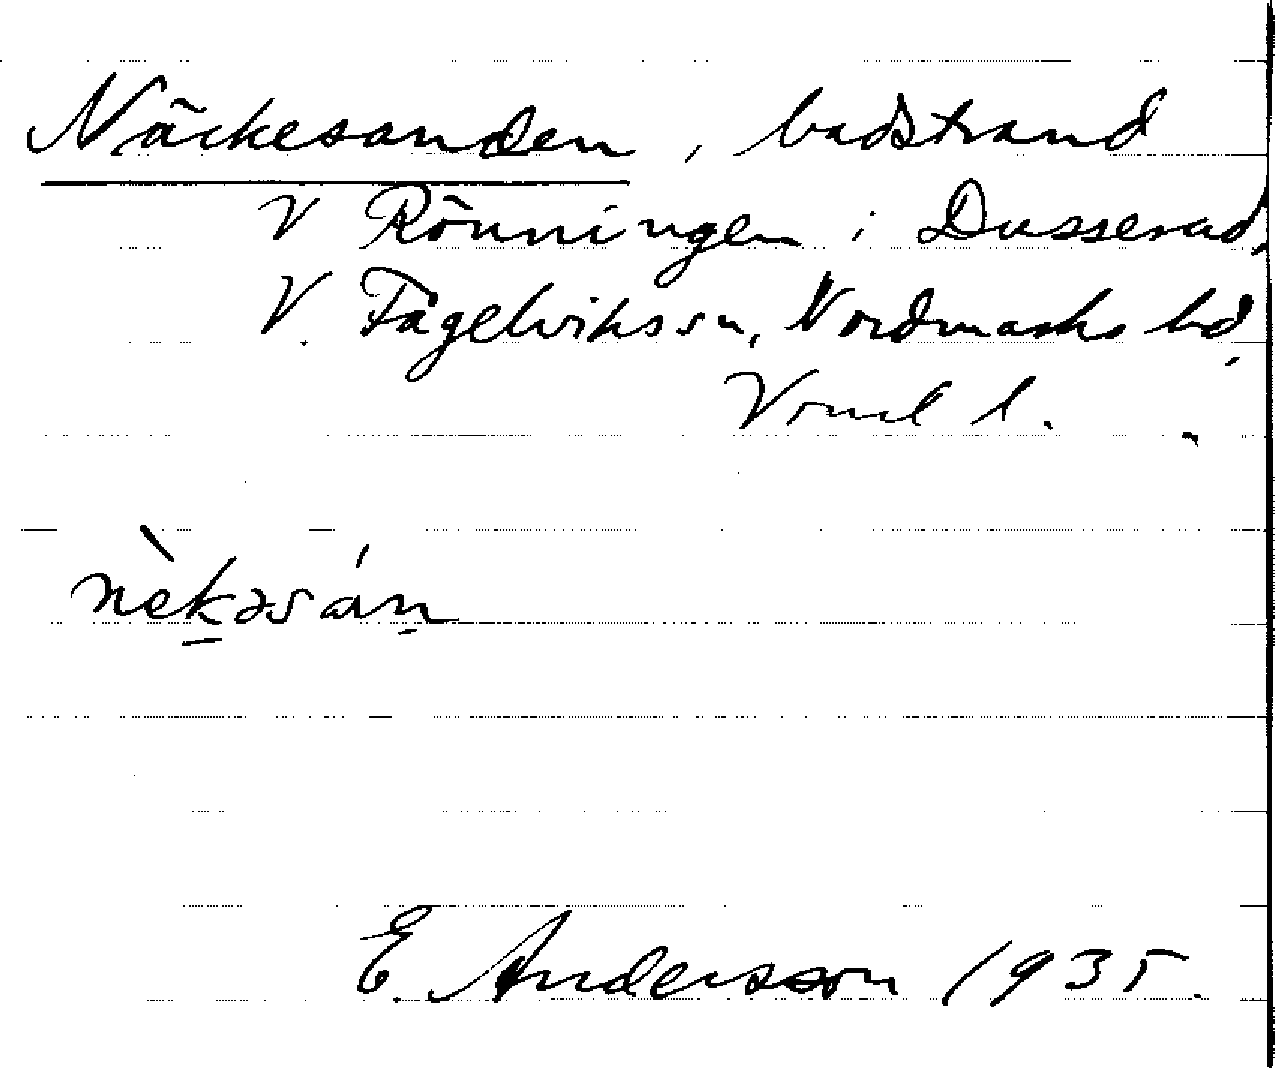 Näckesanden, badstrand
V Rönningen i Dusserud,
V. Fågelvikssn, Nordmarks hd,
Vrml l.
nèkəsán
E. Andersson 1935.